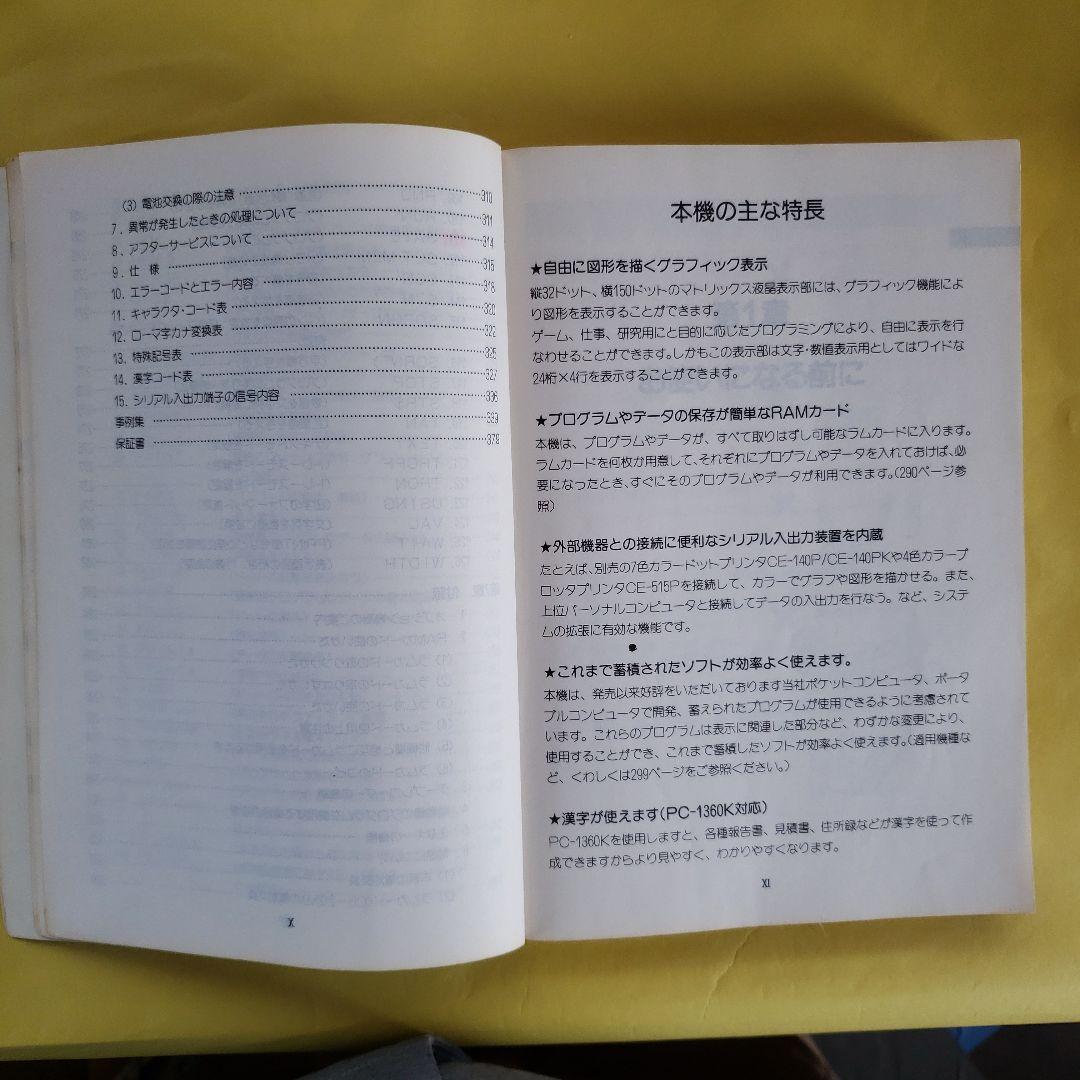 (3) 電池交換の際の注意 310
7. 異常が発生したときの処理について 311
8. アフターサービスについて 314
9. 仕 様 315
10. エラーコードとエラー内容 318
11. キャラクタ・コード表 320
12. ローマ字カナ変換表 322
13. 特殊記号表 325
14. 漢字コード表 327
15. シリアル入出力端子の信号内容 336
事例集 339
保証書 379
X
本機の主な特長
★自由に図形を描くグラフィック表示
縦32ドット、横150ドットのマトリックス液晶表示部には、グラフィック機能によ
り図形を表示することができます。
ゲーム、仕事、研究用にと目的に応じたプログラミングにより、自由に表示を行
なわせることができます。しかもこの表示部は文字・数値表示用としてはワイドな
24桁×4行を表示することができます。
★プログラムやデータの保存が簡単なRAMカード
本機は、プログラムやデータが、すべて取りはずし可能なラムカードに入ります。
ラムカードを何枚か用意して、それぞれにプログラムやデータを入れておけば、必
要になったとき、すぐにそのプログラムやデータが利用できます。(290ページ参
照)
★外部機器との接続に便利なシリアル入出力装置を内蔵
たとえば、別売の7色カラードットプリンタCE-140P/CE-140PKや4色カラープ
ロッタプリンタCE-515Pを接続して、カラーでグラフや図形を描かせる。また、
上位パーソナルコンピュータと接続してデータの入出力を行なう。など、システ
ムの拡張に有効な機能です。
★これまで蓄積されたソフトが効率よく使えます。
本機は、発売以来好評をいただいております当社ポケットコンピュータ、ポータ
ブルコンピュータで開発、蓄えられたプログラムが使用できるように考慮されて
います。これらのプログラムは表示に関連した部分など、わずかな変更により、
使用することができ、これまで蓄積したソフトが効率よく使えます。(適用機種な
ど、くわしくは299ページをご参照ください。)
★漢字が使えます(PC-1360K対応)
PC-1360Kを使用しますと、各種報告書、見積書、住所録などが漢字を使って作
成できますからより見やすく、わかりやすくなります。
XI